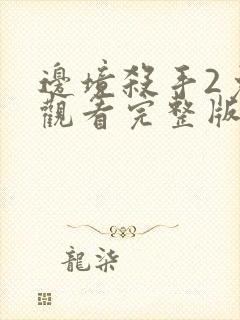 邊境殺手2
觀看完整版
龍柒